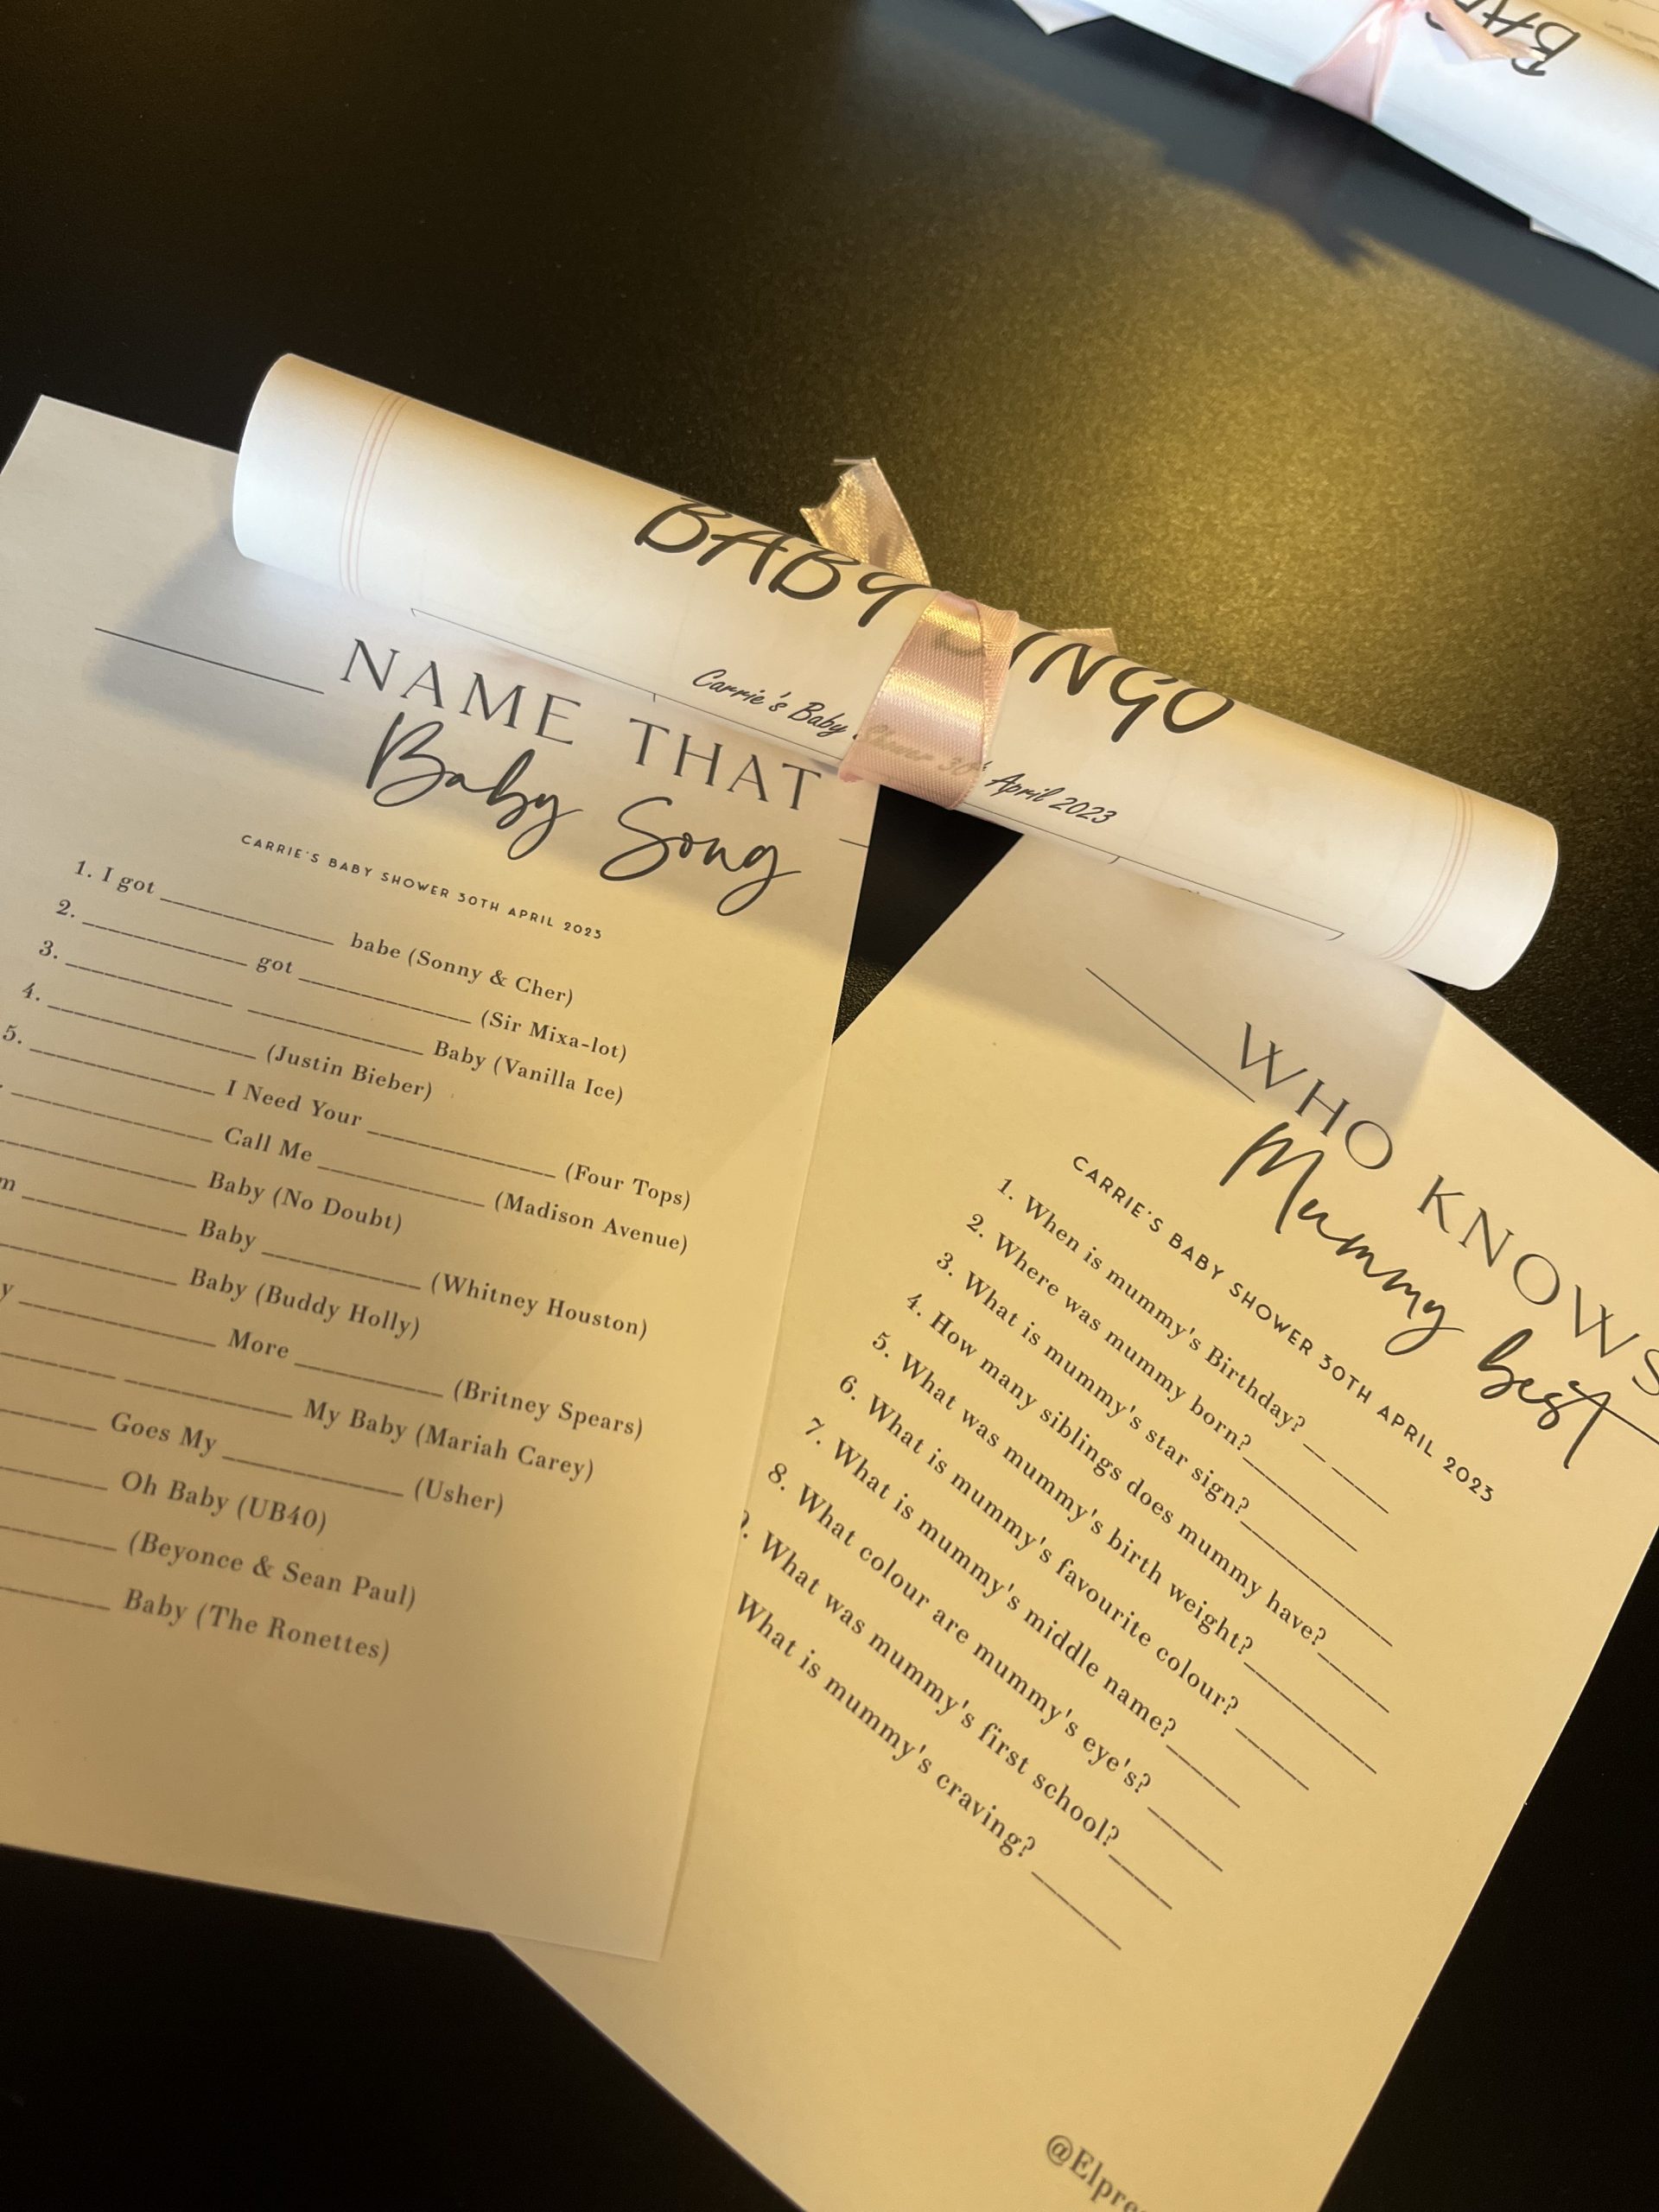 BABY INGO
Carrie's Baby Shower 30th April 2023
NAME THAT
Baby Song
CARRIE'S BABY SHOWER 30TH APRIL 2023
1. I got __________ babe (Sonny & Cher)
2. __________ got __________ (Sir Mixa-lot)
3. __________ __________ Baby (Vanilla Ice)
4. __________ (Justin Bieber)
5. __________ I Need Your __________ (Four Tops)
__________ Call Me __________ (Madison Avenue)
__________ Baby (No Doubt)
m __________ Baby __________ (Whitney Houston)
__________ Baby (Buddy Holly)
y __________ More __________ (Britney Spears)
__________ __________ My Baby (Mariah Carey)
__________ Goes My __________ (Usher)
__________ Oh Baby (UB40)
__________ (Beyonce & Sean Paul)
__________ Baby (The Ronettes)
WHO KNOWS
Mummy best
CARRIE'S BABY SHOWER 30TH APRIL 2023
1. When is mummy's Birthday? __ ____
2. Where was mummy born? ________
3. What is mummy's star sign? ________
4. How many siblings does mummy have? ____
5. What was mummy's birth weight? ________
6. What is mummy's favourite colour? ____
7. What is mummy's middle name? ____
8. What colour are mummy's eye's? ____
9. What was mummy's first school? ____
What is mummy's craving? ____
@Elpre
BAB